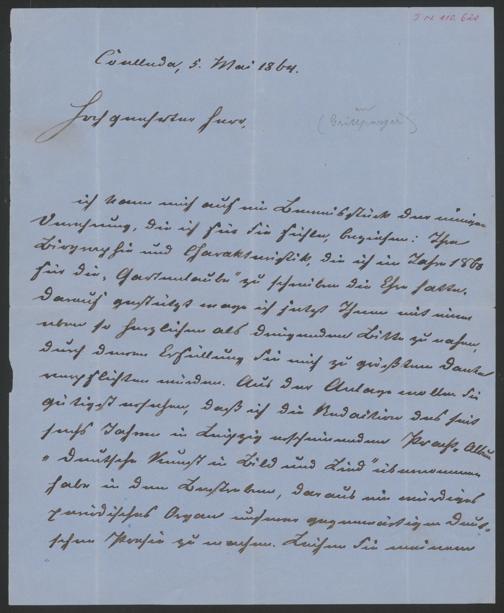 J.N. 110.620
Cölleda, 5. Mai 1864.
Hochgeehrter Herr,
(an Grillparzer)
ich kann mich auf ein Beweisstück der innigen
Verehrung, die ich für Sie fühle, beziehen: Ihre
Biographie und Charakteristik, die ich im Jahre 1860
für die „Gartenlaube" zu schreiben die Ehre hatte.
Darauf gestützt wage ich jetzt Ihnen mit einer
eben so herzlichen als dringenden Bitte zu nahen,
durch deren Erfüllung Sie mich zu größtem Danke
verpflichten würden. Aus der Anlage wollen Sie
gütigst ersehen, daß ich die Redaction des seit
sechs Jahren in Leipzig erscheinenden Pracht-Album
„Deutsche Kunst in Bild und Lied" übernommen
habe in dem Bestreben, daraus ein würdiges
periodisches Organ unserer gegenwärtigen Deut-
schen Poesie zu machen. Leihen Sie meinem